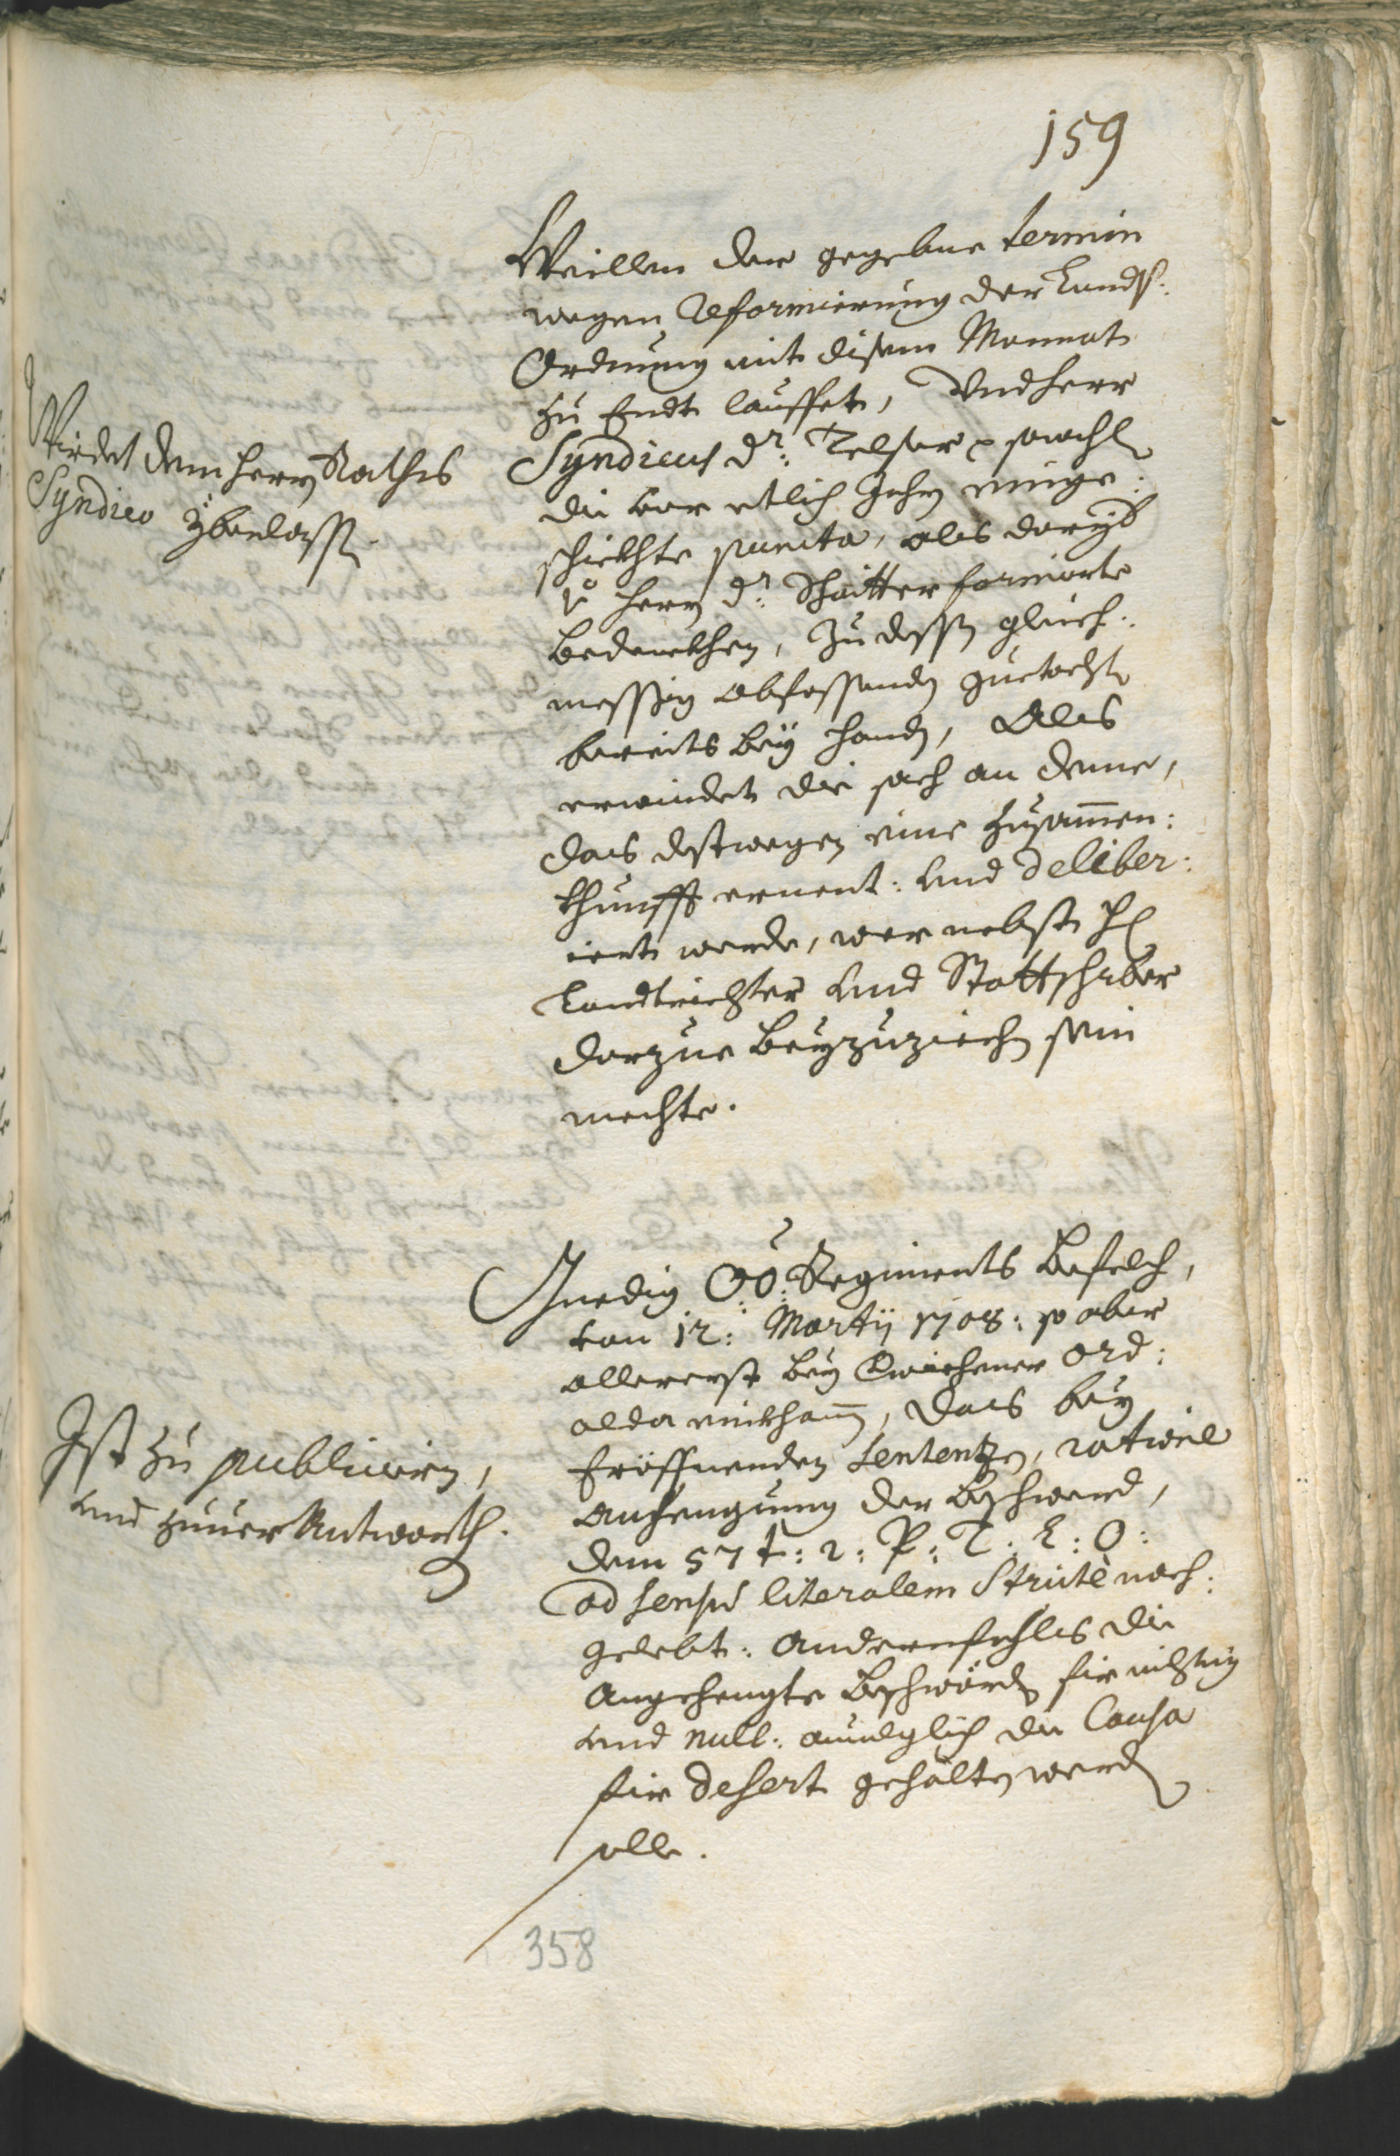 159
Weillen der gegebne termin
wegen Reformierung der Landts:
Ordnung mit disem Monnat
zu Endt lauffet, Und herr
Syndicus Dr: Telser sowohl
die vor etlich Jahrn einge:
schickhte puncta, als dariyb
Herrn Dr: Schaitter formierte
bedenckhen, zu dessen gleich:
messig abfassenden guetacht
bereits bey handen, Als
erwindet die sach an deme,
das destwegen eine zusamen:
khunfft ernent: und deliber:
iert werde, wer nebst H
Landtrichter und Stattschrber
darzue beyzuziechn sein
mechte.
Wirdet dem herrn Rathes
Syndico yberlassn.
Gnedig OÖ: Regiments befelch,
von 12: Martij 1708: so aber
allererst bey Ordj:
alda einkhomen, das bey
Eröffnenden Sententzn, ratione
anhengung der beschwerd,
dem 57 t: 2: P: T: L: O:
ad sensum literalem Strictè nach:
gelebt: andernfahls die
angehengte beschwörde fir nichtig
und null: die Causa
fir desert gehalten werdn
solle.
Ist zu publiciern,
und zuuer Antworth.
358